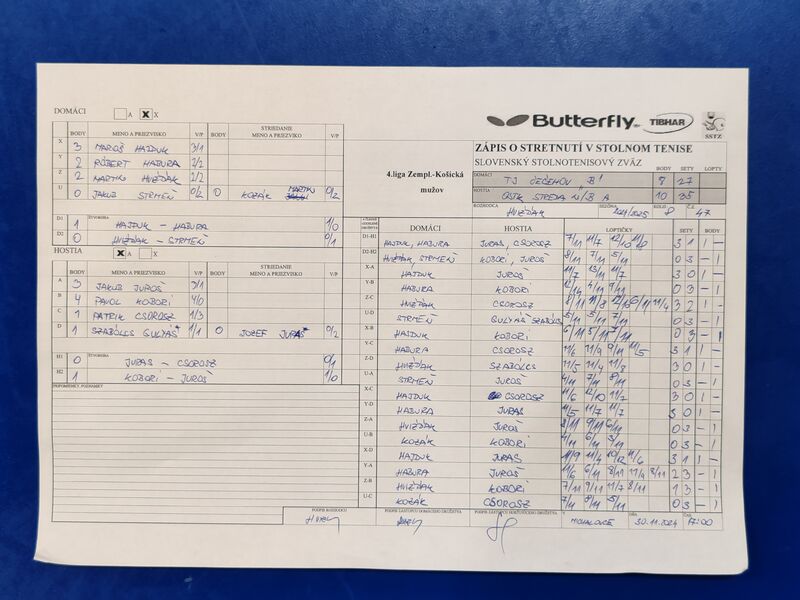 DOMÁCI A X X
BODY MENO A PRIEZVISKO V/P BODY STRIEDANIE MENO A PRIEZVISKO V/P
X 3 MAROŠ HAJDUK 3/1
Y 2 RÓBERT HABURA 2/2
Z 2 MARTIN HVIŽĎAK 2/2
U 0 JAKUB STRMEŇ 0/2 0 KOZÁK MARTIN 0/2
D1 ŠTVORHRA 1 HAJDUK - HABURA 1/0
D2 0 HVIŽĎAK - STRMEŇ 0/1
HOSTIA X A X
BODY MENO A PRIEZVISKO V/P BODY STRIEDANIE MENO A PRIEZVISKO V/P
A 3 JAKUB JUROŠ 3/1
B 4 PAVOL KOBORI 4/0
C 1 PATRIK CSOROSZ 1/3
D 1 SZABÓLCS GULYÁS 1/1 0 JOZEF JURAŠ 0/2
H1 ŠTVORHRA 0 JURAS - CSOROSZ 0/1
H2 1 KOBORI - JUROŠ 1/0
PRIPOMIENKY, POZNÁMKY
PODPIS ROZHODCU
4.liga Zempl.-Košická
mužov
Butterfly TIBHAR SSTZ
ZÁPIS O STRETNUTÍ V STOLNOM TENISE
SLOVENSKÝ STOLNOTENISOVÝ ZVÄZ BODY SETY LOPTY
DOMÁCI TJ ČEČEHOV "B" 8 27
HOSTIA OSTK STREDA N/B A 10 35
ROZHODCA HVIŽĎAK SEZÓNA 2024/2025 KOLO 8 Č.Z. 47
DOMÁCI HOSTIA LOPTIČKY SETY BODY
D1-H1 HAJDUK, HABURA JURAS, CSOROSZ 7/11 11/7 12/10 11/8 3 1 1 -
D2-H2 HVIŽĎAK STRMEŇ KOBORI, JUROŠ 8/11 7/11 5/11 0 3 - 1
X-A HAJDUK JUROŠ 11/7 13/11 11/7 3 0 1 -
Y-B HABURA KOBORI 0 3 - 1
Z-C HVIŽĎAK CSOROSZ 3 2 1 -
U-D STRMEŇ GULYÁŠ SZABÓLCS 0 3 - 1
X-B HAJDUK KOBORI 6/11 5/11 7/11 0 3 - 1
Y-C HABURA CSOROSZ 11/6 11/9 9/11 11/5 3 1 1 -
Z-D HVIŽĎAK SZABÓLCS 11/5 11/4 11/8 3 0 1 -
U-A STRMEŇ JUROŠ 0 3 - 1
X-C HAJDUK CSOROSZ 11/6 12/10 11/7 3 0 1 -
Y-D HABURA JURAS 11/5 11/7 11/7 3 0 1 -
Z-A HVIŽĎAK JUROŠ 8/11 9/11 6/11 0 3 - 1
U-B KOZÁK KOBORI 4/11 6/11 3/11 0 3 - 1
X-D HAJDUK JURAS 11/9 11/4 10/12 11/6 3 1 1 -
Y-A HABURA JUROŠ 11/6 6/11 8/11 11/4 8/11 2 3 - 1
Z-B HVIŽĎAK KOBORI 7/11 9/11 11/7 8/11 1 3 - 1
U-C KOZÁK CSOROSZ 0 3 - 1
PODPIS ZÁSTUPCU DOMÁCEHO DRUŽSTVA
PODPIS ZÁSTUPCU HOSŤUJÚCEHO DRUŽSTVA
V MICHALOVCE DŇA 30.11.2024 ČAS 17:00